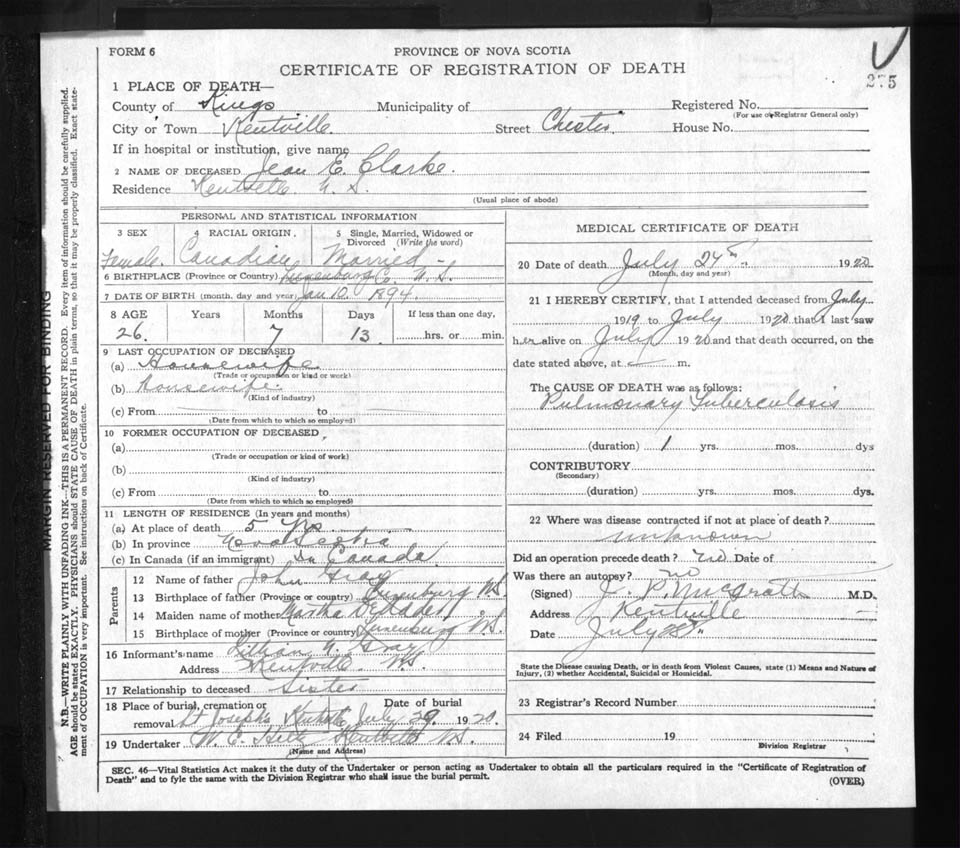 FORM 6
PROVINCE OF NOVA SCOTIA
CERTIFICATE OF REGISTRATION OF DEATH
275
1 PLACE OF DEATH—
County of Kings Municipality of Registered No.
(For use of Registrar General only)
City or Town Kentville Street Chester House No.
If in hospital or institution, give name
2 NAME OF DECEASED Jean E. Clarke.
Residence Kentville N. S.
(Usual place of abode)
PERSONAL AND STATISTICAL INFORMATION
3 SEX 4 RACIAL ORIGIN. 5 Single, Married, Widowed or Divorced (Write the word)
Female. Canadian Married
6 BIRTHPLACE (Province or Country) Lunenburg Co. N. S.
7 DATE OF BIRTH (month, day and year) Jan 10. 1894.
8 AGE Years Months Days If less than one day,
26. 7 13 hrs. or min.
9 LAST OCCUPATION OF DECEASED
(a) Housewife
(Trade or occupation or kind or work)
(b) housewife.
(Kind of industry)
(c) From to
(Date from which to which so employed)
10 FORMER OCCUPATION OF DECEASED,
(a)
(Trade or occupation or kind of work)
(b)
(Kind of industry)
(c) From to
(Date from which to which so employed)
11 LENGTH OF RESIDENCE (In years and months)
(a) At place of death 5
(b) In province Nova Scotia
(c) In Canada (if an immigrant) In Canada
Parents
12 Name of father John Gray
13 Birthplace of father (Province or country) Lunenburg N.S.
14 Maiden name of mother Martha
15 Birthplace of mother (Province or country) Lunenburg N.S.
16 Informant's name Lillian N. Gray
Address Kentville N.S.
17 Relationship to deceased Sister
18 Place of burial, cremation or removal St Josephs Kentville Date of burial July 1920.
19 Undertaker W. E. Kentville N.S.
(Name and Address)
MEDICAL CERTIFICATE OF DEATH
20 Date of death July 24th 1920
(Month, day and year)
21 I HEREBY CERTIFY, that I attended deceased from July
1919 to July 1920 that I last saw
her alive on July 1920 and that death occurred, on the
date stated above, at — m.
The CAUSE OF DEATH was as follows:
Pulmonary Tuberculosis
(duration) 1 yrs. mos. dys
CONTRIBUTORY
(Secondary)
(duration) yrs. mos. dys.
22 Where was disease contracted if not at place of death?
unknown
Did an operation precede death? no Date of
Was there an autopsy? no
(Signed) J. P. McGrath M.D.
Address Kentville
Date July
State the Disease causing Death, or in death from Violent Causes, state (1) Means and Nature of
Injury, (2) whether Accidental, Suicidal or Homicidal.
23 Registrar's Record Number
24 Filed 19
Division Registrar
SEC. 46—Vital Statistics Act makes it the duty of the Undertaker or person acting as Undertaker to obtain all the particulars required in the "Certificate of Registration of
Death" and to fyle the same with the Division Registrar who shall issue the burial permit.
(OVER)
MARGIN RESERVED FOR BINDING
N.B.—WRITE PLAINLY WITH UNFADING INK—THIS IS A PERMANENT RECORD. Every item of information should be carefully supplied.
AGE should be stated EXACTLY. PHYSICIANS should STATE CAUSE OF DEATH in plain terms, so that it may be properly classified. Exact state-
ment of OCCUPATION is very important. See instructions on back of Certificate.